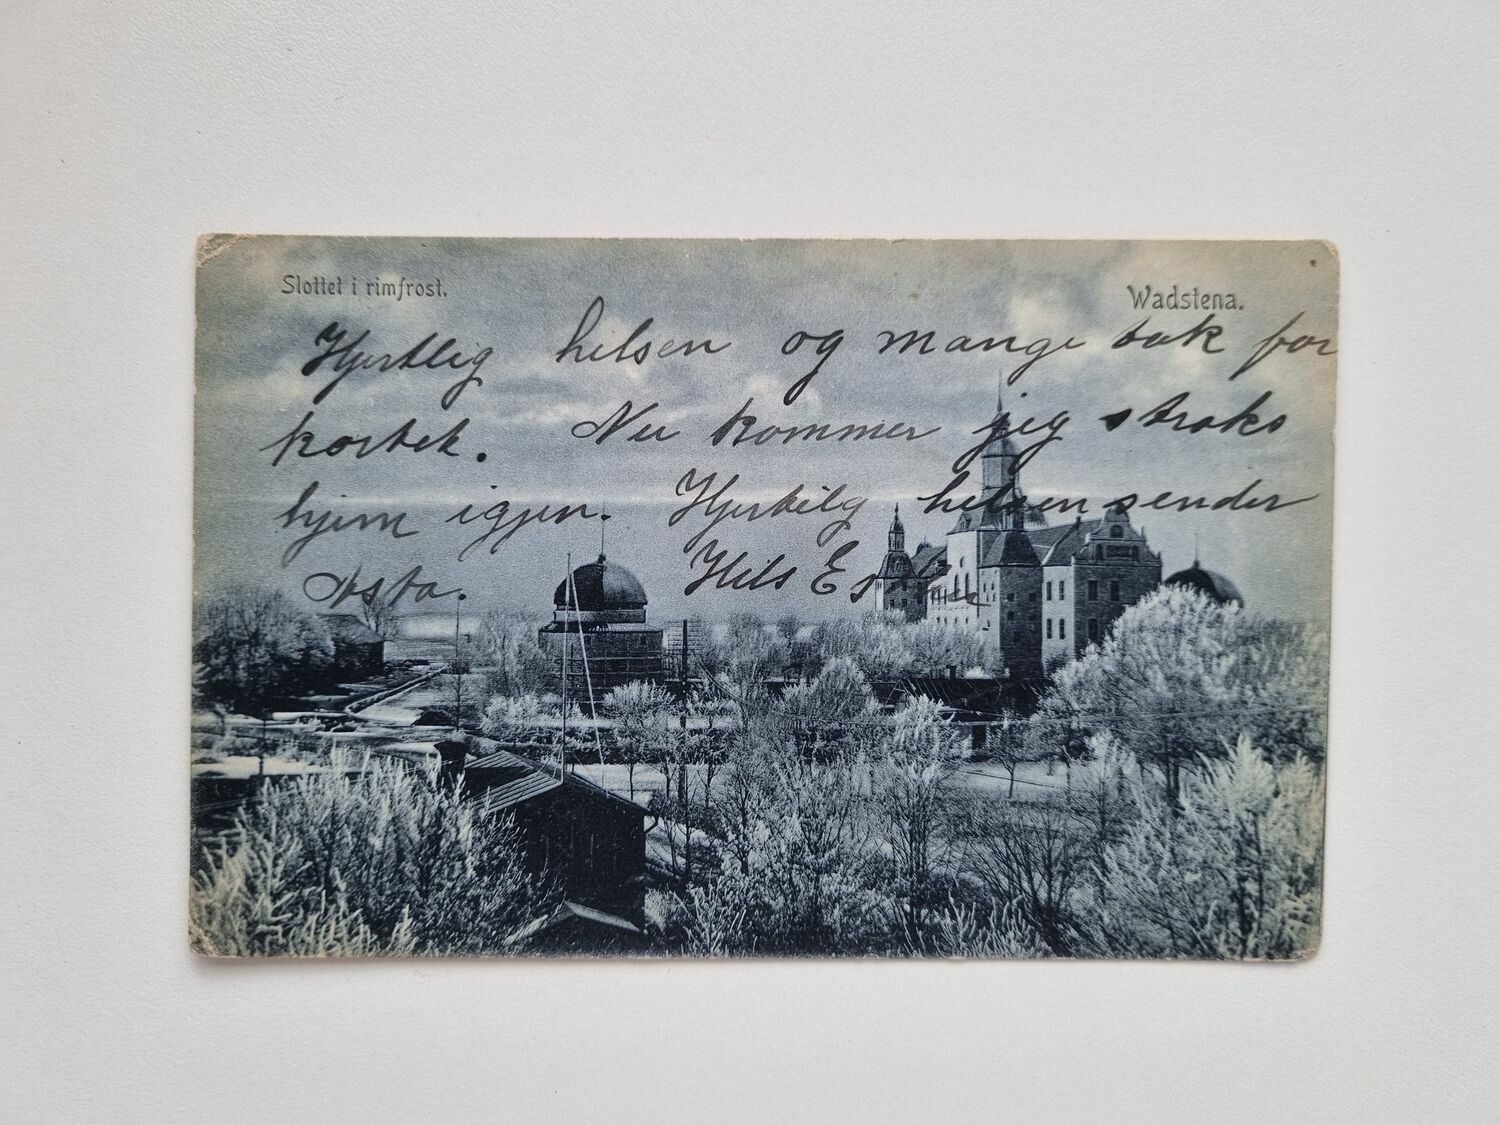 Slottet i rimfrost.
Wadstena.
Hjertlig helsen og mange tak for
kortet. Nu kommer jeg straks
hjem igjen. Hjertilg helsen sender
Asta. Hils